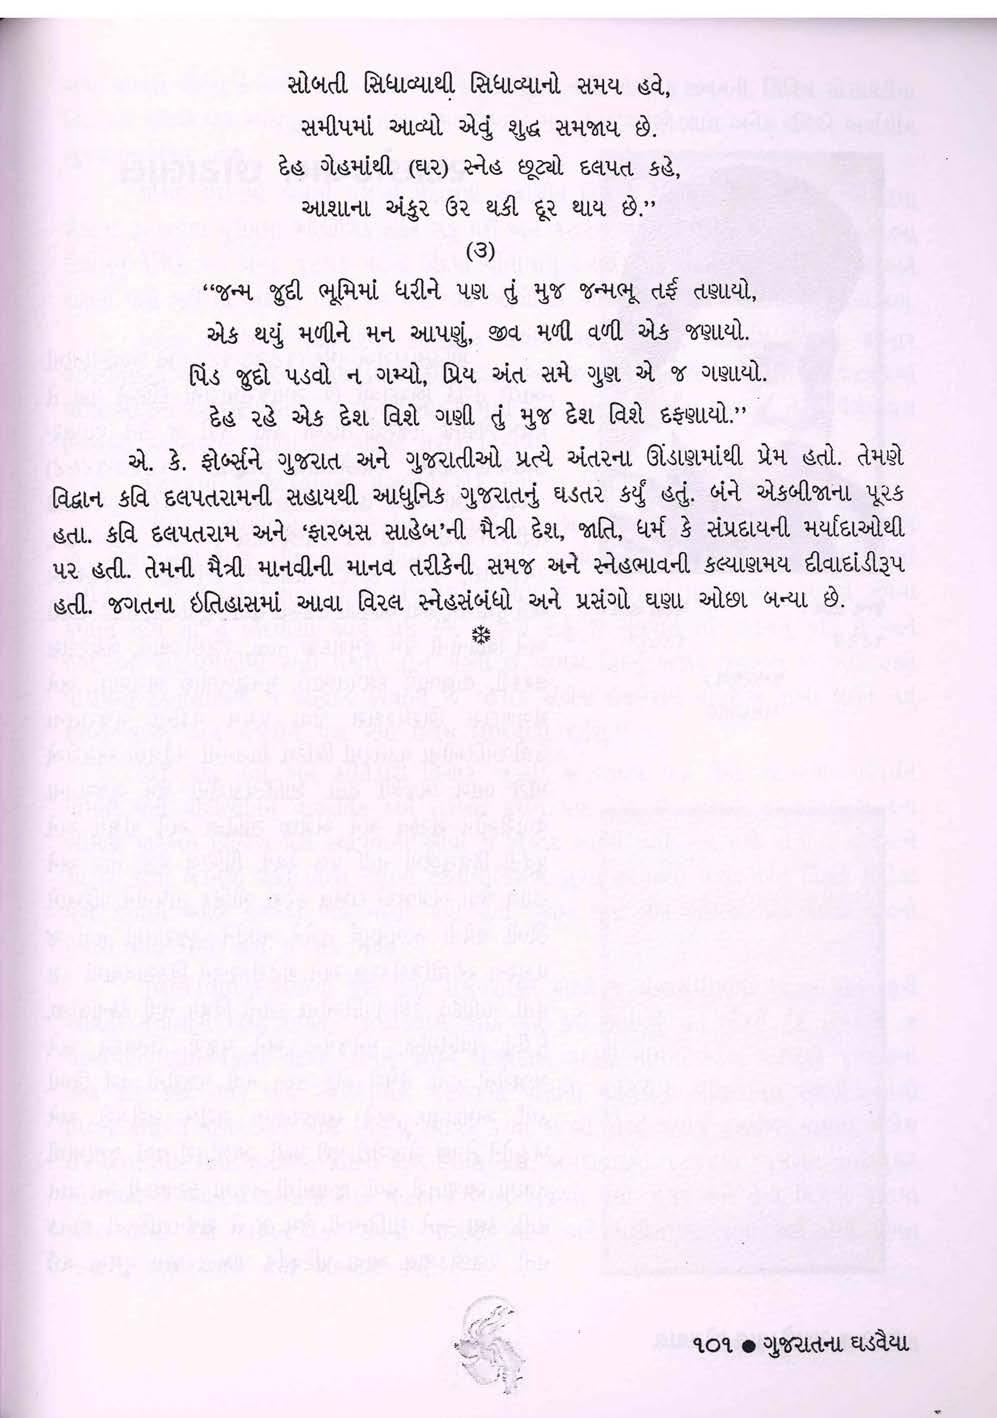 સોબતી સિધાવ્યાથી સિધાવ્યાનો સમય હવે,
સમીપમાં આવ્યો એવું શુદ્ધ સમજાય છે.
દેહ ગેહમાંથી (ઘર) સ્નેહ છૂટ્યો દલપત કહે,
આશાના અંકુર ઉર થકી દૂર થાય છે.”
(૩)
“જન્મ જુદી ભૂમિમાં ધરીને પણ તું મુજ જન્મભૂ તર્ફ તણાયો,
એક થયું મળીને મન આપણું, જીવ મળી વળી એક જણાયો.
પિંડ જુદો પડવો ન ગમ્યો, પ્રિય અંત સમે ગુણ એ જ ગણાયો.
દેહ રહે એક દેશ વિશે ગણી તું મુજ દેશ વિશે દફણાયો.”
એ. કે. ફોર્બ્સને ગુજરાત અને ગુજરાતીઓ પ્રત્યે અંતરના ઊંડાણમાંથી પ્રેમ હતો. તેમણે
વિદ્વાન કવિ દલપતરામની સહાયથી આધુનિક ગુજરાતનું ઘડતર કર્યું હતું. બંને એકબીજાના પૂરક
હતા. કવિ દલપતરામ અને ‘ફારબસ સાહેબ’ની મૈત્રી દેશ, જાતિ, ધર્મ કે સંપ્રદાયની મર્યાદાઓથી
પર હતી. તેમની મૈત્રી માનવીની માનવ તરીકેની સમજ અને સ્નેહભાવની કલ્યાણમય દીવાદાંડીરૂપ
હતી. જગતના ઇતિહાસમાં આવા વિરલ સ્નેહસંબંધો અને પ્રસંગો ઘણા ઓછા બન્યા છે.
❄
૧૦૧ ● ગુજરાતના ઘડવૈયા